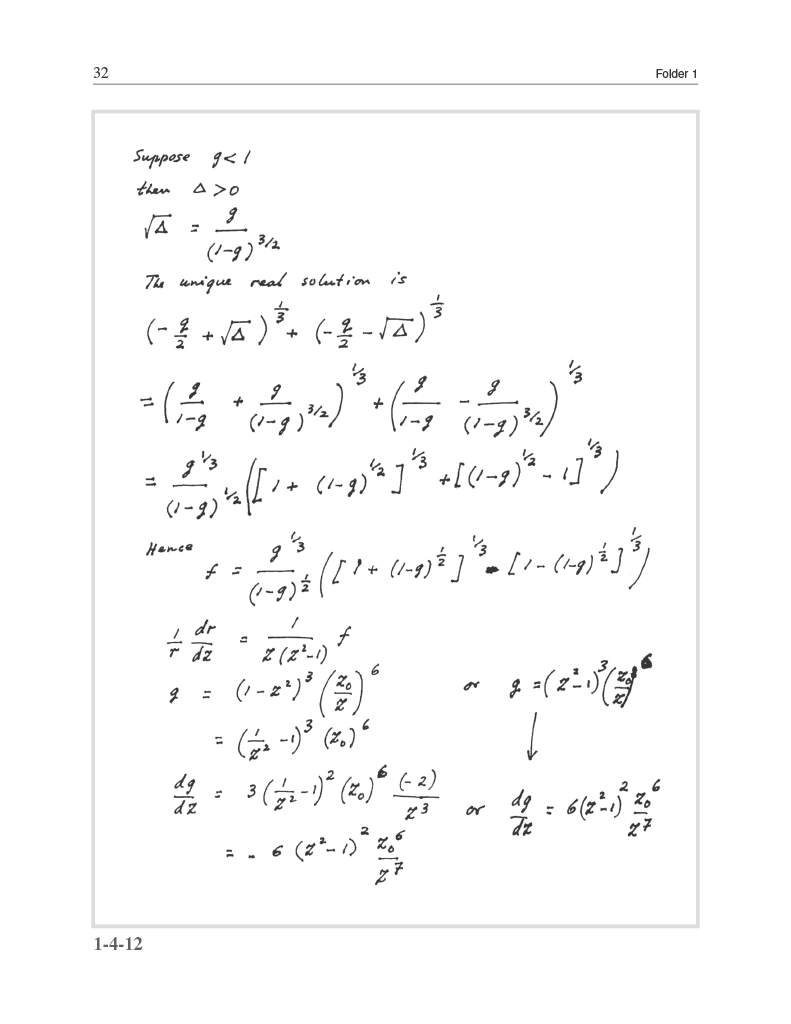 32 Folder 1
Suppose g < 1
then Δ > 0
√Δ = g / (1-g)^{3/2}
The unique real solution is
(-q/2 + √Δ)^{1/3} + (-q/2 - √Δ)^{1/3}
= (g/(1-g) + g/(1-g)^{3/2})^{1/3} + (g/(1-g) - g/(1-g)^{3/2})^{1/3}
= g^{1/3}/(1-g)^{1/2} ([1 + (1-g)^{1/2}]^{1/3} + [(1-g)^{1/2} - 1]^{1/3})
Hence f = g^{1/3}/(1-g)^{1/2} ([1 + (1-g)^{1/2}]^{1/3} - [1 - (1-g)^{1/2}]^{1/3})
1/r dr/dz = 1/(z(z²-1)) f
g = (1-z²)³ (z₀/z)⁶ or g = (z²-1)³ (z₀/z)⁶
= (1/z² - 1)³ (z₀)⁶ ↓
dg/dz = 3(1/z² - 1)² (z₀)⁶ (-2)/z³ or dg/dz = 6(z²-1)² z₀⁶/z⁷
= - 6 (z²-1)² z₀⁶/z⁷
1-4-12